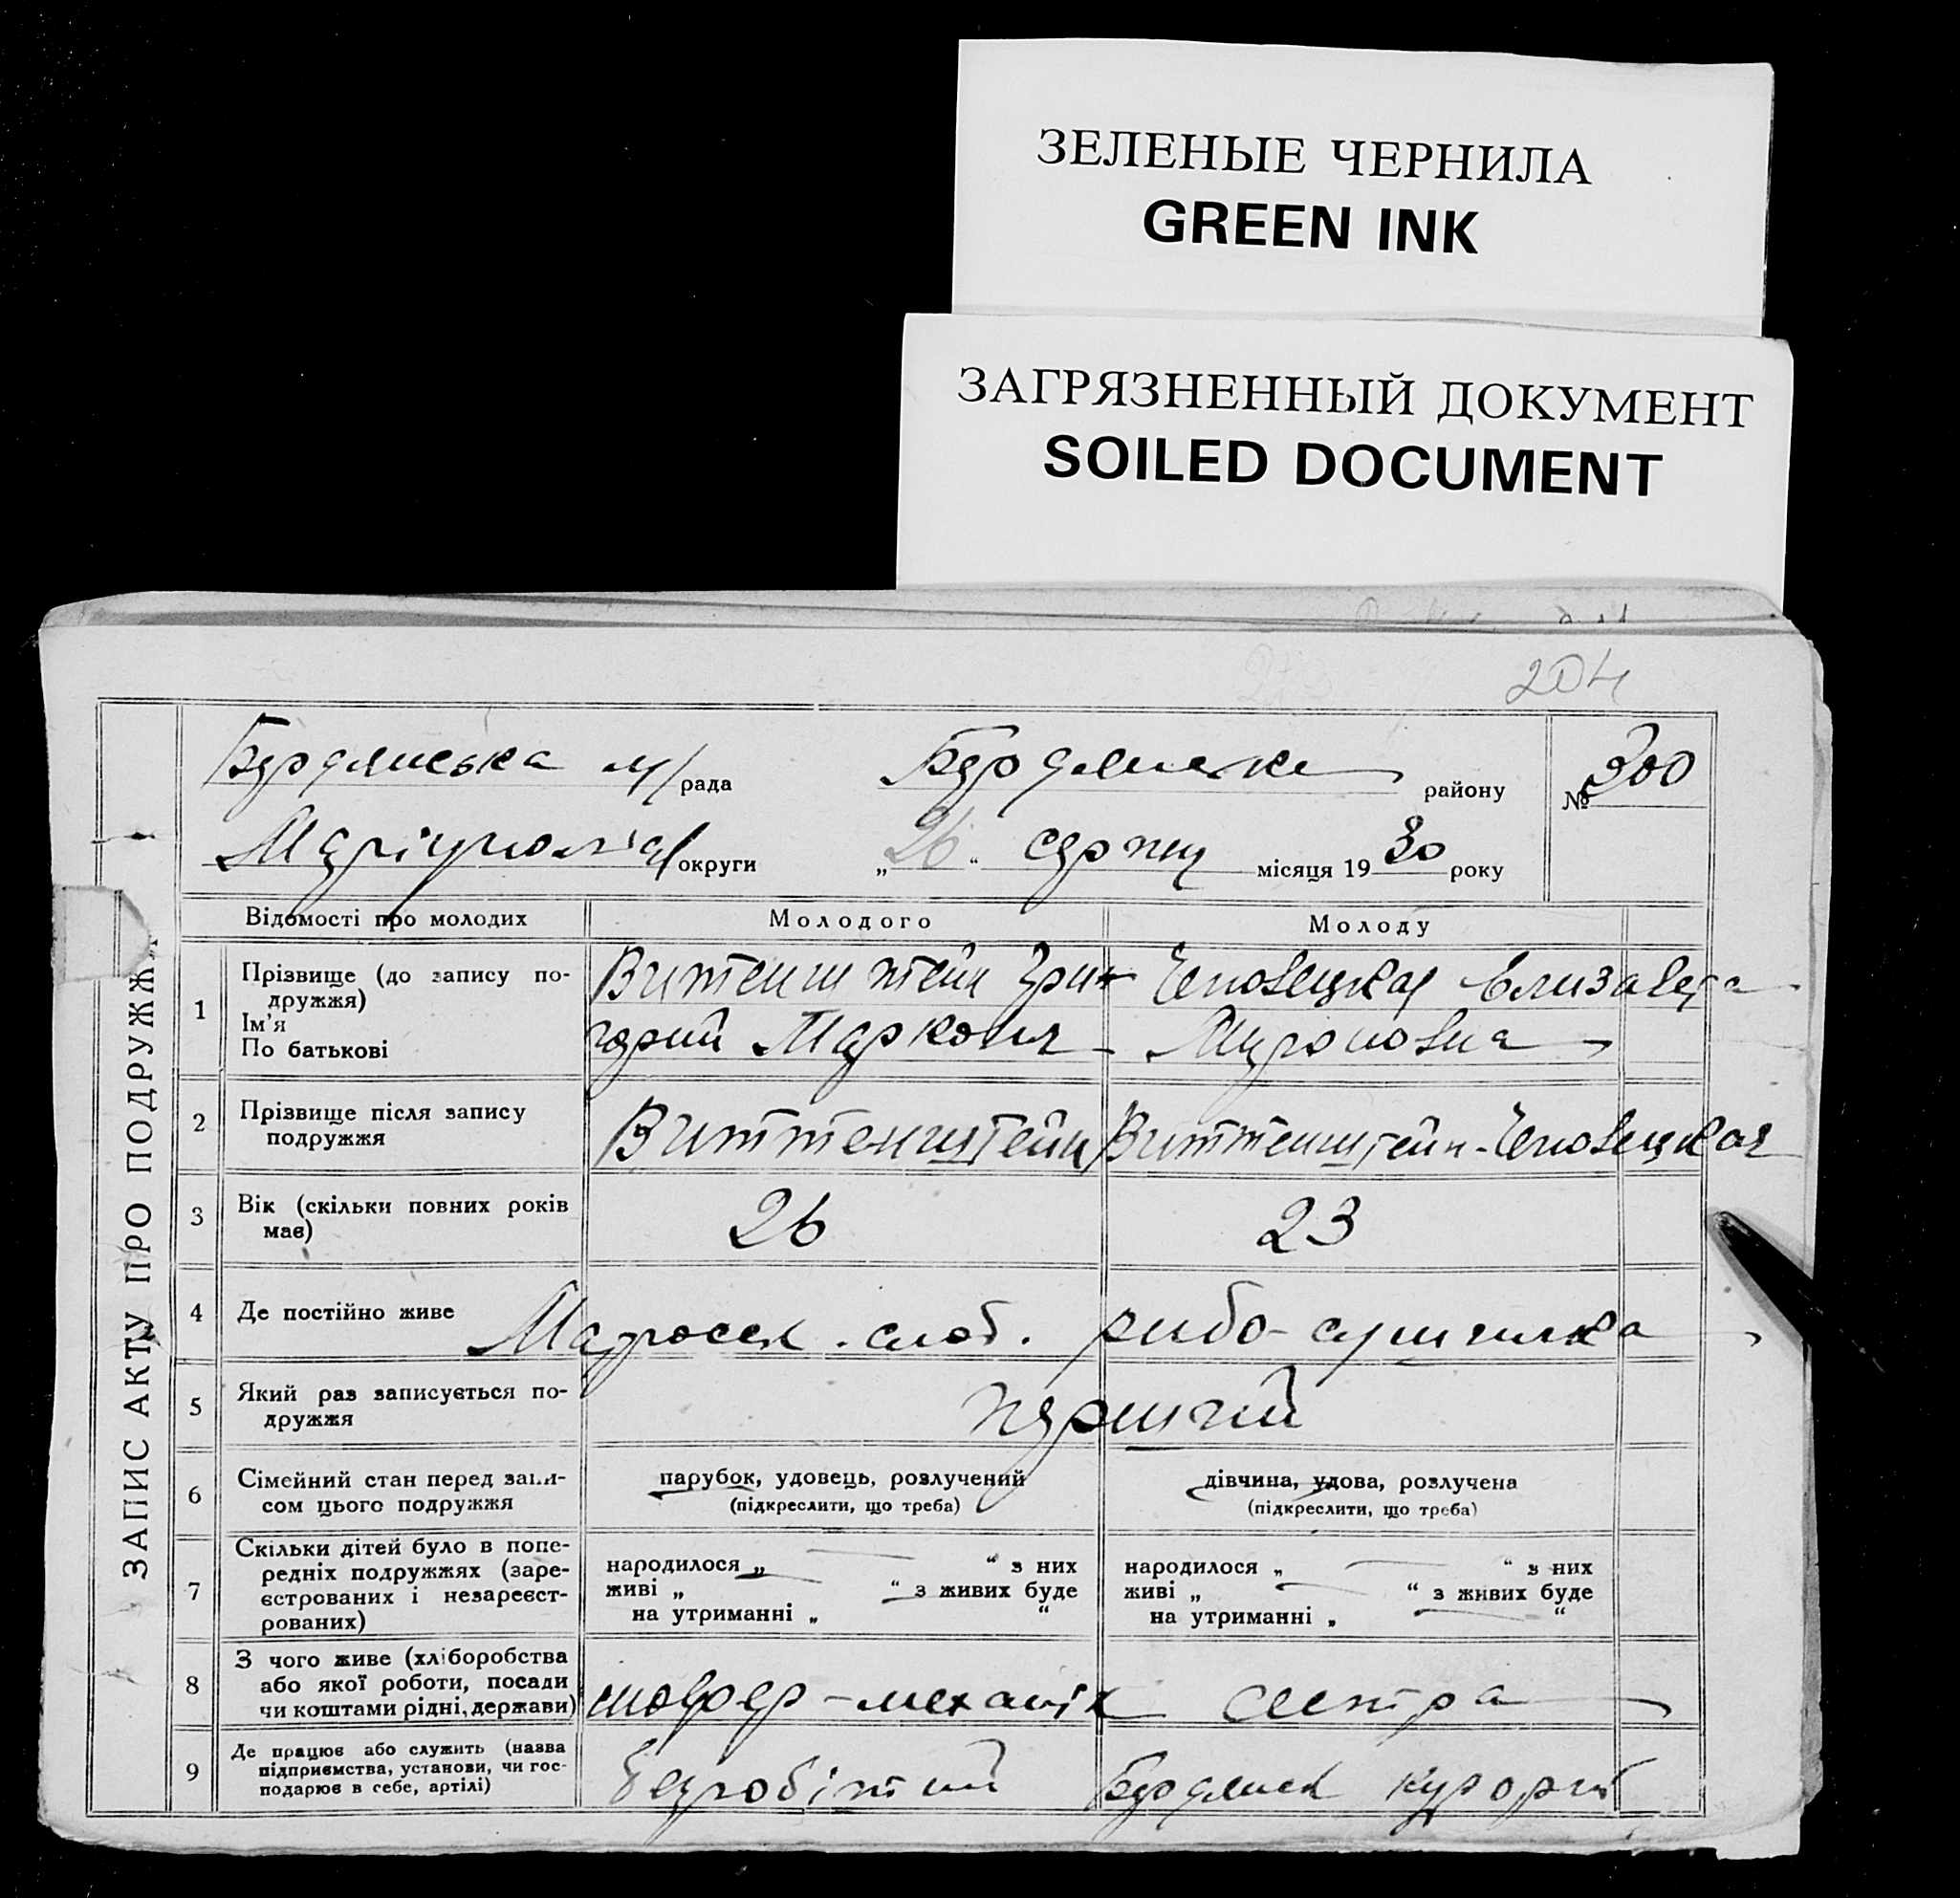 ЗЕЛЕНЫЕ ЧЕРНИЛА
GREEN INK
ЗАГРЯЗНЕННЫЙ ДОКУМЕНТ
SOILED DOCUMENT
204
ЗАПИС АКТУ ПРО ПОДРУЖЖЯ
Бердянська м/рада Бердянськ району № 300
округи „26“ серпня місяця 1930 року
Відомості про молодих Молодого Молоду
1 Прізвище (до запису по-
дружжя)
Ім'я
По батькові
Витенштейн Гри-
горий Маркович
Елизавета
Мироновна
2 Прізвище після запису
подружжя
Виттенштейн
3 Вік (скільки повних років
має)
26 23
4 Де постійно живе Матросск. слоб. рибо-сушилка
5 Який раз записується по-
дружжя
перший
6 Сімейний стан перед запи-
сом цього подружжя
парубок, удовець, розлучений
(підкреслити, що треба)
дівчина, удова, розлучена
(підкреслити, що треба)
7 Скільки дітей було в попе-
редніх подружжях (заре-
єстрованих і незареєст-
рованих)
народилося „ “ з них
живі „ “ з живих буде
на утриманні „ “
народилося „ “ з них
живі „ “ з живих буде
на утриманні „ “
8 З чого живе (хліборобства
або якої роботи, посади
чи коштами рідні, держави)
шофер-механік сестра
9 Де працює або служить (назва
підприємства, установи, чи гос-
подарює в себе, артілі)
безробітний Бердянск курорт